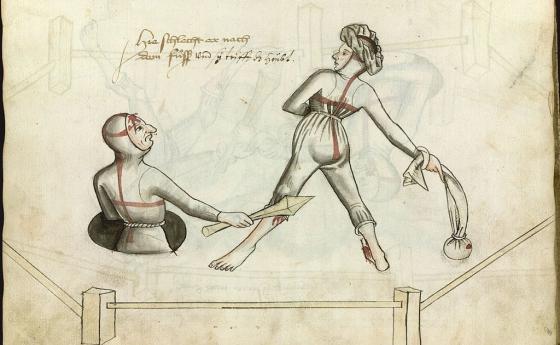 Hie schlecht er nach
dem fuſſ und triff houbt.